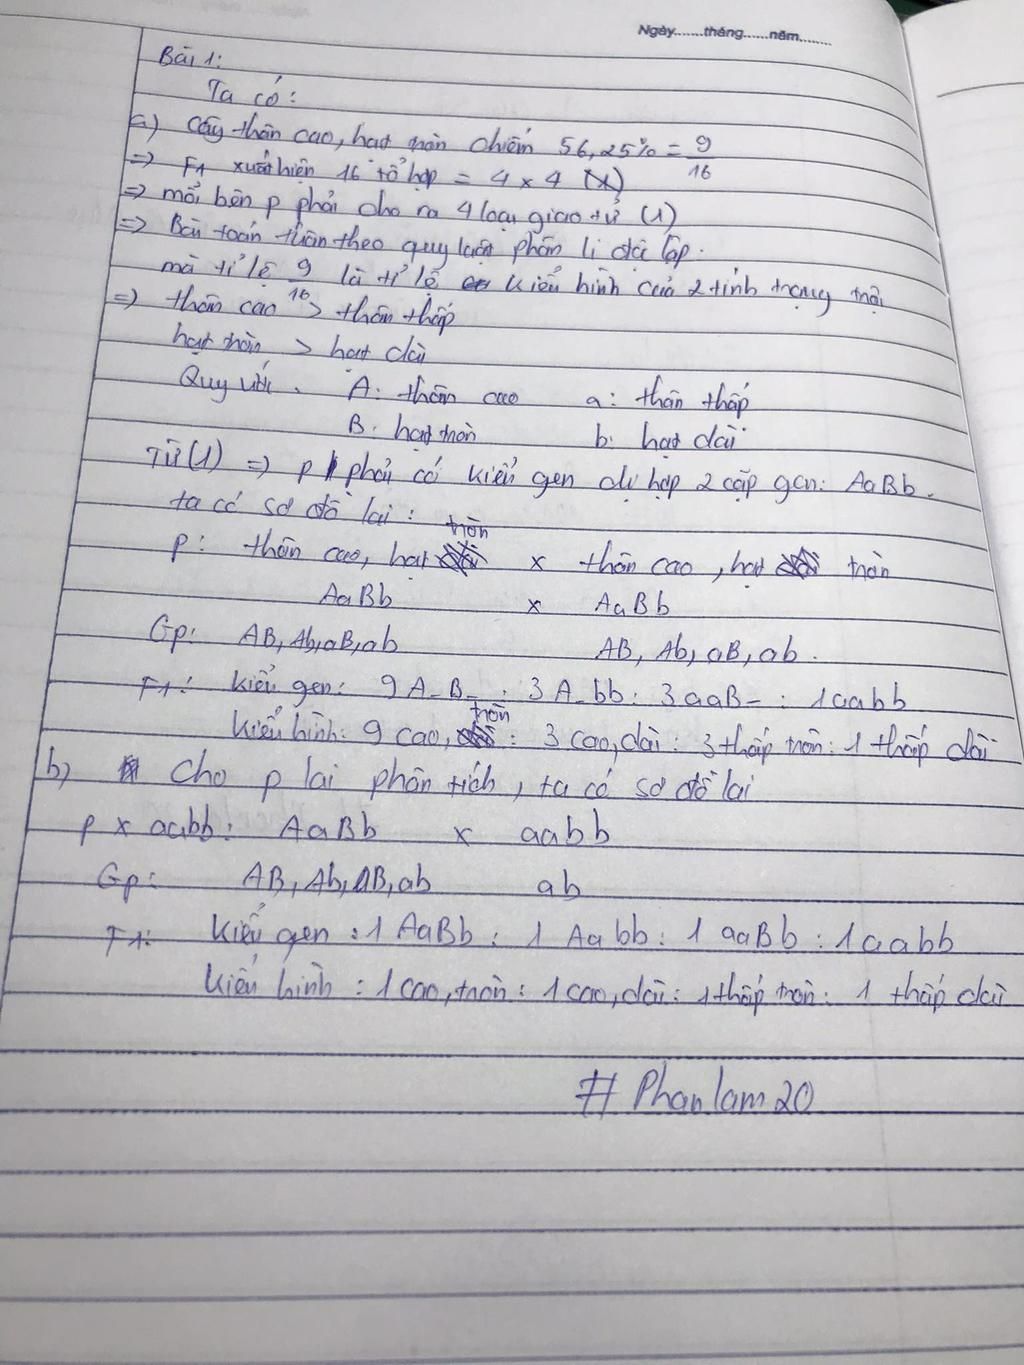 Ngày.......tháng......năm........
Bài 1:
Ta có:
a) Cây thân cao, hạt tròn chiếm 56,25% = 9/16
=> F1 xuất hiện 16 tổ hợp = 4 x 4 (x)
=> mỗi bên p phải cho ra 4 loại giao tử (1)
=> Bài toán tuân theo quy luật phân li độc lập.
mà tỉ lệ 9/16 là tỉ lệ kiểu hình của 2 tính trạng trội
=> thân cao > thân thấp
hạt tròn > hạt dài
Quy ước. A: thân cao a: thân thấp
B. hạt tròn b. hạt dài
Từ (1) => p phải có kiểu gen dị hợp 2 cặp gen: AaBb.
ta có sơ đồ lai:
p: thân cao, hạt tròn x thân cao, hạt tròn
AaBb x AaBb
Gp: AB, Ab, aB, ab AB, Ab, aB, ab.
F1: kiểu gen: 9 A-B- : 3 A-bb : 3 aaB- : 1 aabb
kiểu hình: 9 cao, tròn : 3 cao, dài : 3 thấp tròn : 1 thấp dài
b) Cho p lai phân tích, ta có sơ đồ lai
p x aabb: AaBb x aabb
Gp: AB, Ab, aB, ab ab
F1: kiểu gen : 1 AaBb : 1 Aabb : 1 aaBb : 1 aabb
kiểu hình : 1 cao, tròn : 1 cao, dài : 1 thấp tròn : 1 thấp dài
# Phanlam20